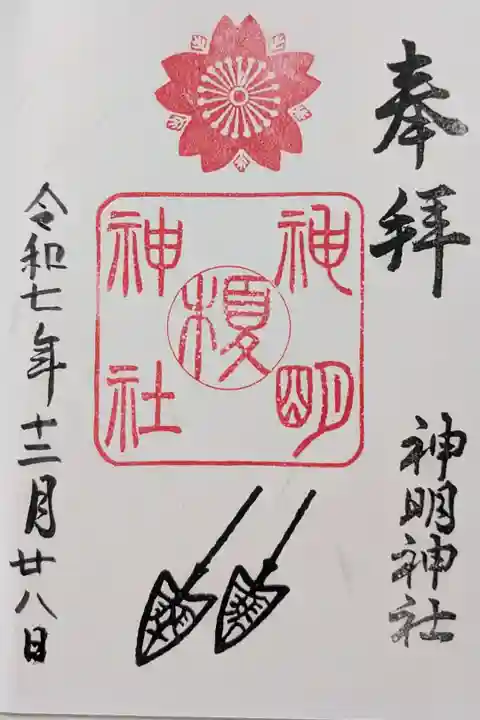 奉拝
神明神社
神明
榎
神社
令和七年十二月廿八日